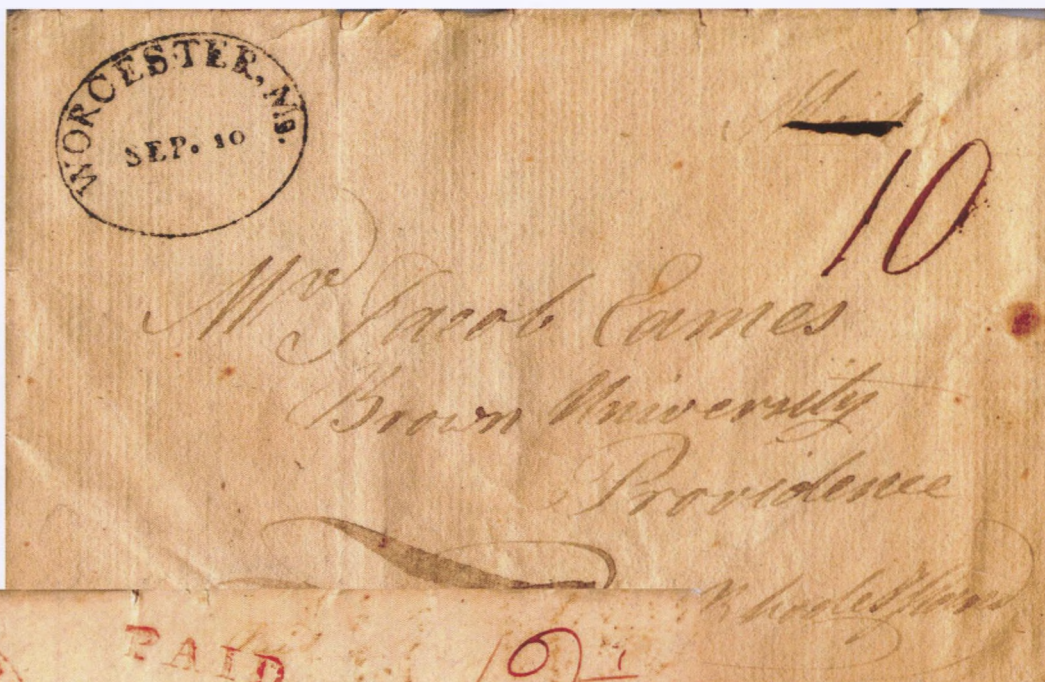 WORCESTER, MS.
SEP. 10
10
Mr Jacob Eames
Brown University
Providence
Rhode Island
PAID